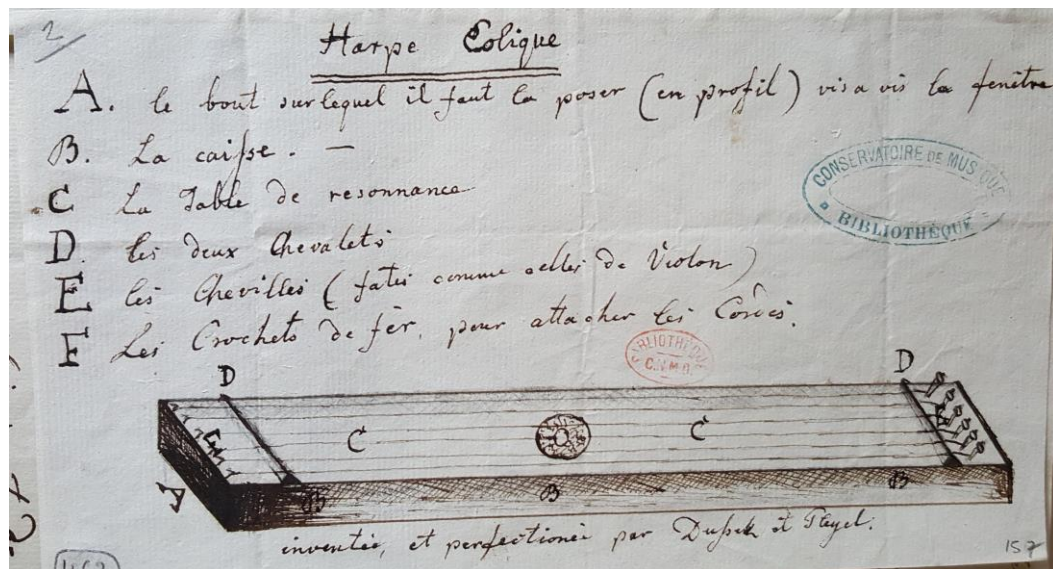 2
Harpe Eolique
A. le bout sur lequel il faut la poser (en profil) vis a vis la fenêtre
B. La caisse. —
C La Table de resonnance
D. les deux Chevalets
E les Chevilles (fates comme celles de Violon)
F Les Crochets de fer, pour attacher les Cordes.
CONSERVATOIRE DE MUSIQUE
BIBLIOTHÈQUE
BIBLIOTHÈQUE
C.N.M.D.
D D
C C
A
B B B
inventée, et perfectionée par Dussek et Pleyel.
157